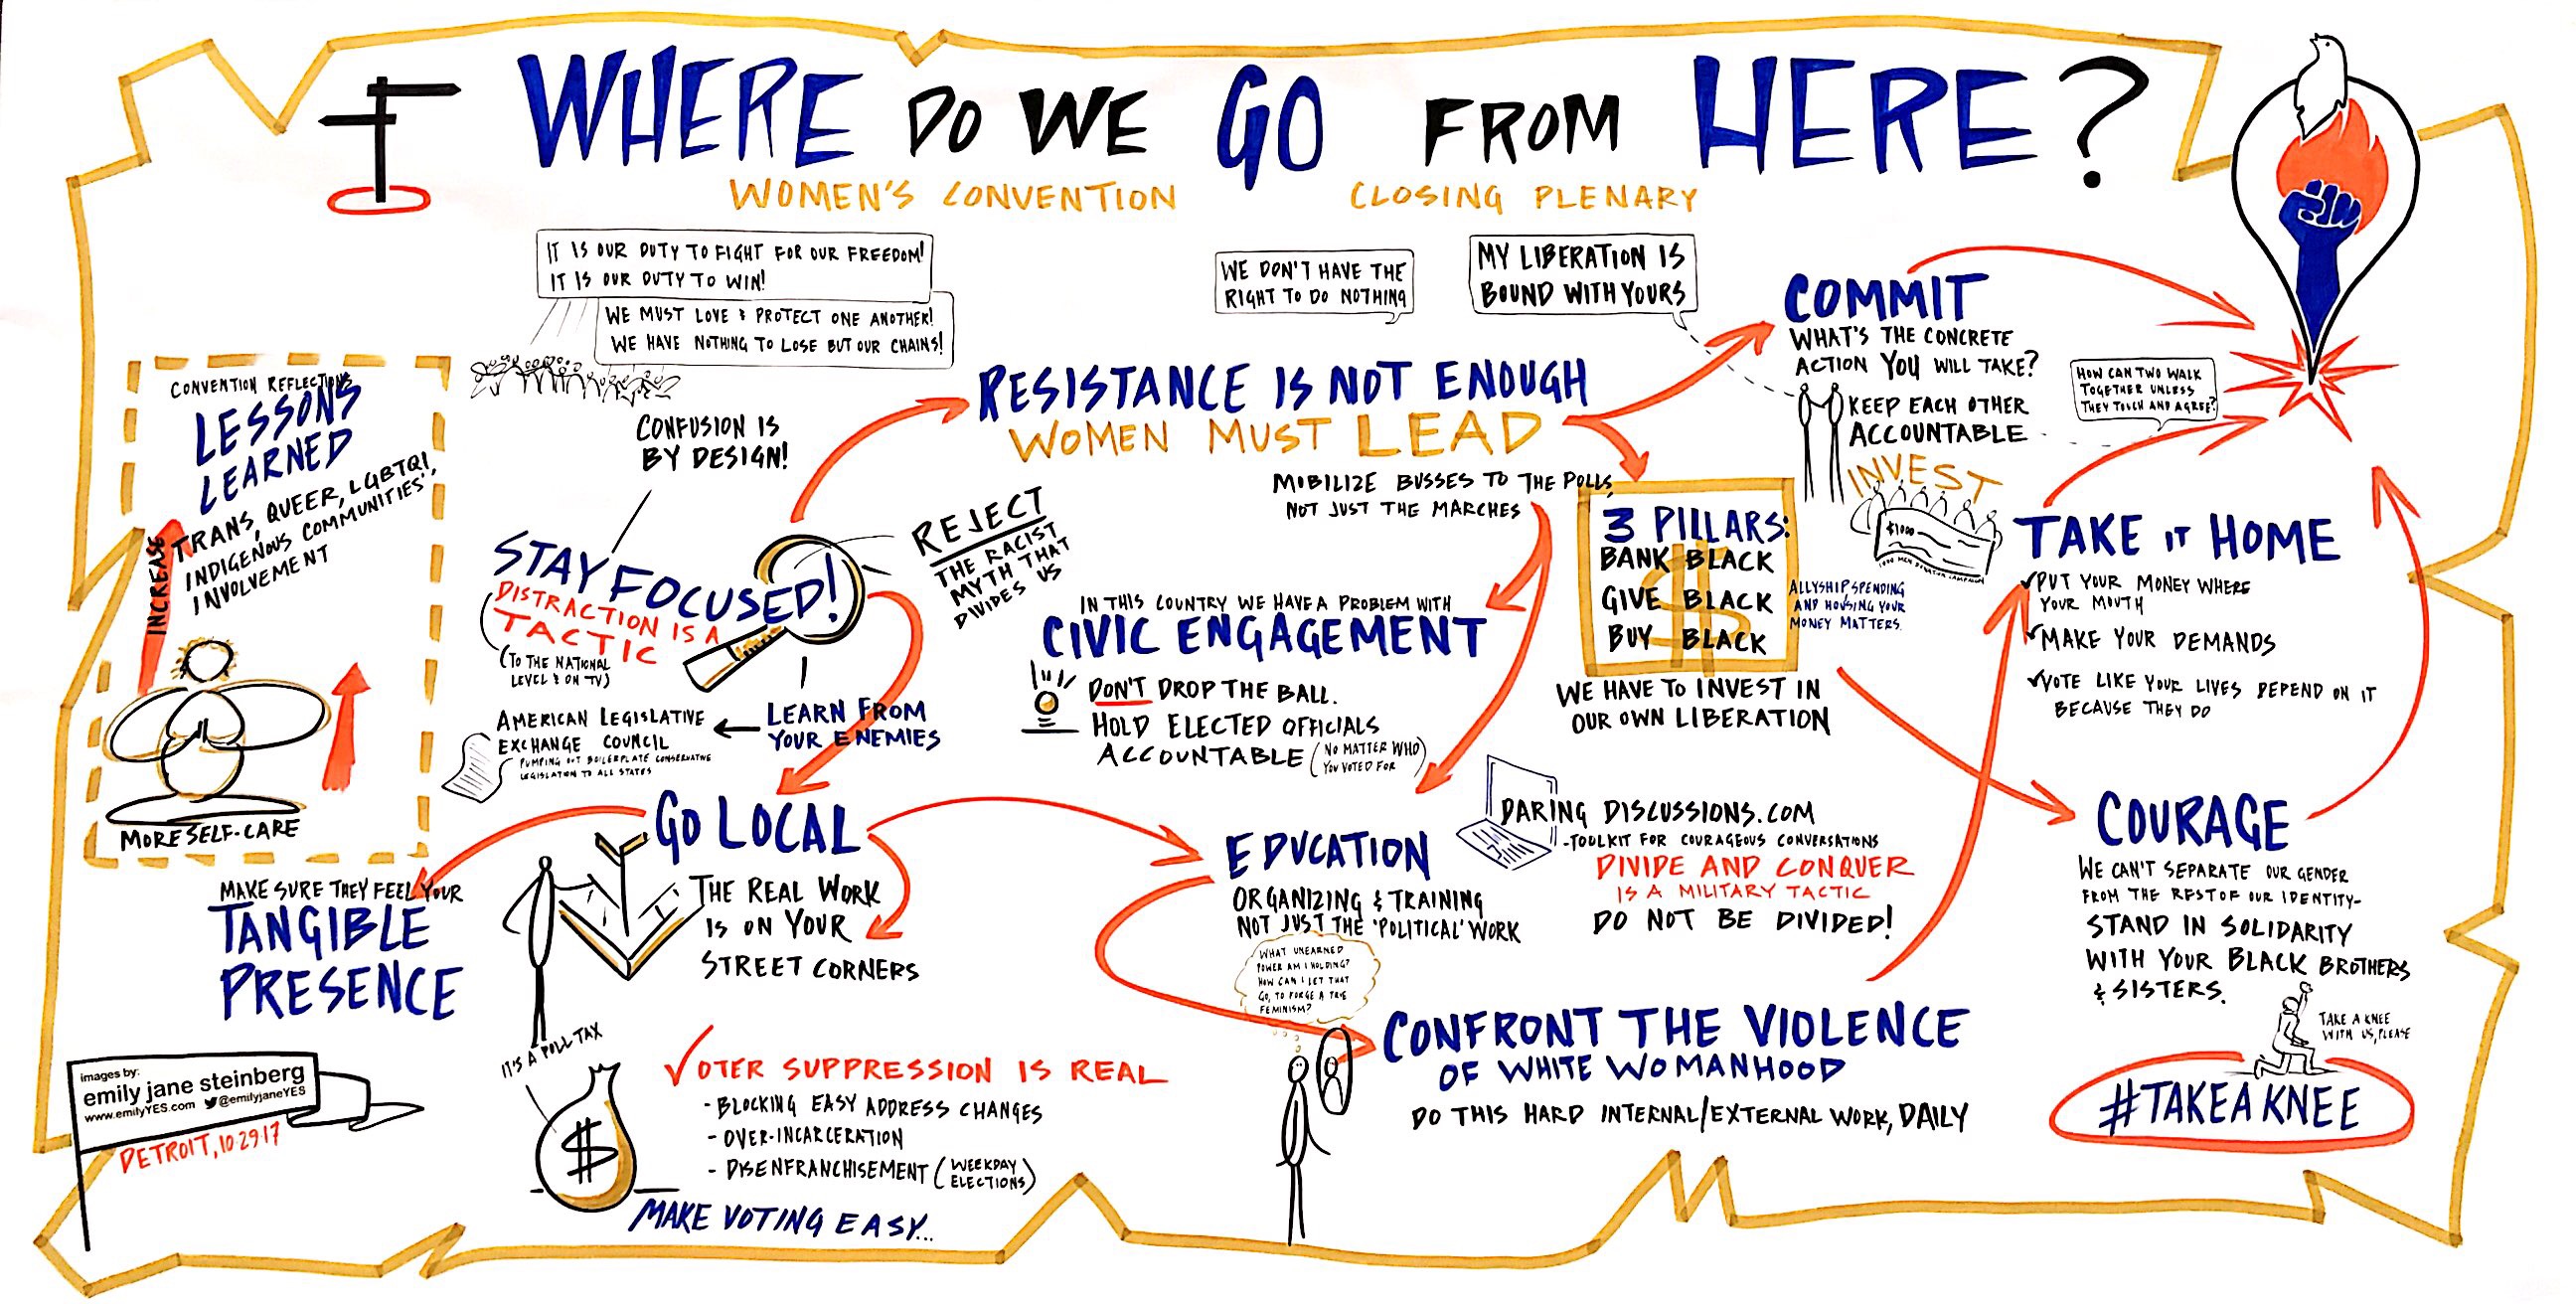 WHERE DO WE GO FROM HERE?
WOMEN'S CONVENTION CLOSING PLENARY
IT IS OUR DUTY TO FIGHT FOR OUR FREEDOM!
IT IS OUR DUTY TO WIN!
WE MUST LOVE & PROTECT ONE ANOTHER!
WE HAVE NOTHING TO LOSE BUT OUR CHAINS!
WE DON'T HAVE THE
RIGHT TO DO NOTHING
MY LIBERATION IS
BOUND WITH YOURS
CONVENTION REFLECTIONS
LESSONS
LEARNED
INCREASE
TRANS, QUEER, LGBTQI,
INDIGENOUS COMMUNITIES'
INVOLVEMENT
MORE SELF-CARE
CONFUSION IS
BY DESIGN!
STAY FOCUSED!
DISTRACTION IS A
TACTIC
(TO THE NATIONAL
LEVEL & ON TV)
REJECT
THE RACIST
MYTH THAT
DIVIDES US
LEARN FROM
YOUR ENEMIES
AMERICAN LEGISLATIVE
EXCHANGE COUNCIL
PUMPING OUT BOILERPLATE CONSERVATIVE
LEGISLATION TO ALL STATES
RESISTANCE IS NOT ENOUGH
WOMEN MUST LEAD
MOBILIZE BUSSES TO THE POLLS,
NOT JUST THE MARCHES
IN THIS COUNTRY WE HAVE A PROBLEM WITH
CIVIC ENGAGEMENT
DON'T DROP THE BALL.
HOLD ELECTED OFFICIALS
ACCOUNTABLE (NO MATTER WHO
YOU VOTED FOR)
COMMIT
WHAT'S THE CONCRETE
ACTION YOU WILL TAKE?
KEEP EACH OTHER
ACCOUNTABLE
HOW CAN TWO WALK
TOGETHER UNLESS
THEY TOUCH AND AGREE?
INVEST
$1000
3 PILLARS:
BANK BLACK
GIVE BLACK
BUY BLACK
$
ALLYSHIP, SPENDING
AND HOUSING YOUR
MONEY MATTERS.
WE HAVE TO INVEST IN
OUR OWN LIBERATION
TAKE IT HOME
PUT YOUR MONEY WHERE
YOUR MOUTH
MAKE YOUR DEMANDS
VOTE LIKE YOUR LIVES DEPEND ON IT
BECAUSE THEY DO
MAKE SURE THEY FEEL YOUR
TANGIBLE
PRESENCE
GO LOCAL
THE REAL WORK
IS ON YOUR
STREET CORNERS
EDUCATION
ORGANIZING & TRAINING
NOT JUST THE 'POLITICAL' WORK
WHAT UNEARNED
POWER AM I HOLDING?
HOW CAN I LET THAT
GO, TO FORGE A TRUE
FEMINISM?
DARING DISCUSSIONS.COM
-TOOLKIT FOR COURAGEOUS CONVERSATIONS
DIVIDE AND CONQUER
IS A MILITARY TACTIC
DO NOT BE DIVIDED!
COURAGE
WE CAN'T SEPARATE OUR GENDER
FROM THE REST OF OUR IDENTITY-
STAND IN SOLIDARITY
WITH YOUR BLACK BROTHERS
& SISTERS.
TAKE A KNEE
WITH US, PLEASE
#TAKEAKNEE
CONFRONT THE VIOLENCE
OF WHITE WOMANHOOD
DO THIS HARD INTERNAL/EXTERNAL WORK, DAILY
IT'S A POLL TAX
$
VOTER SUPPRESSION IS REAL
-BLOCKING EASY ADDRESS CHANGES
-OVER-INCARCERATION
-DISENFRANCHISEMENT (WEEKDAY
ELECTIONS)
MAKE VOTING EASY...
images by:
emily jane steinberg
www.emilyYES.com @emilyjaneYES
DETROIT, 10.29.17